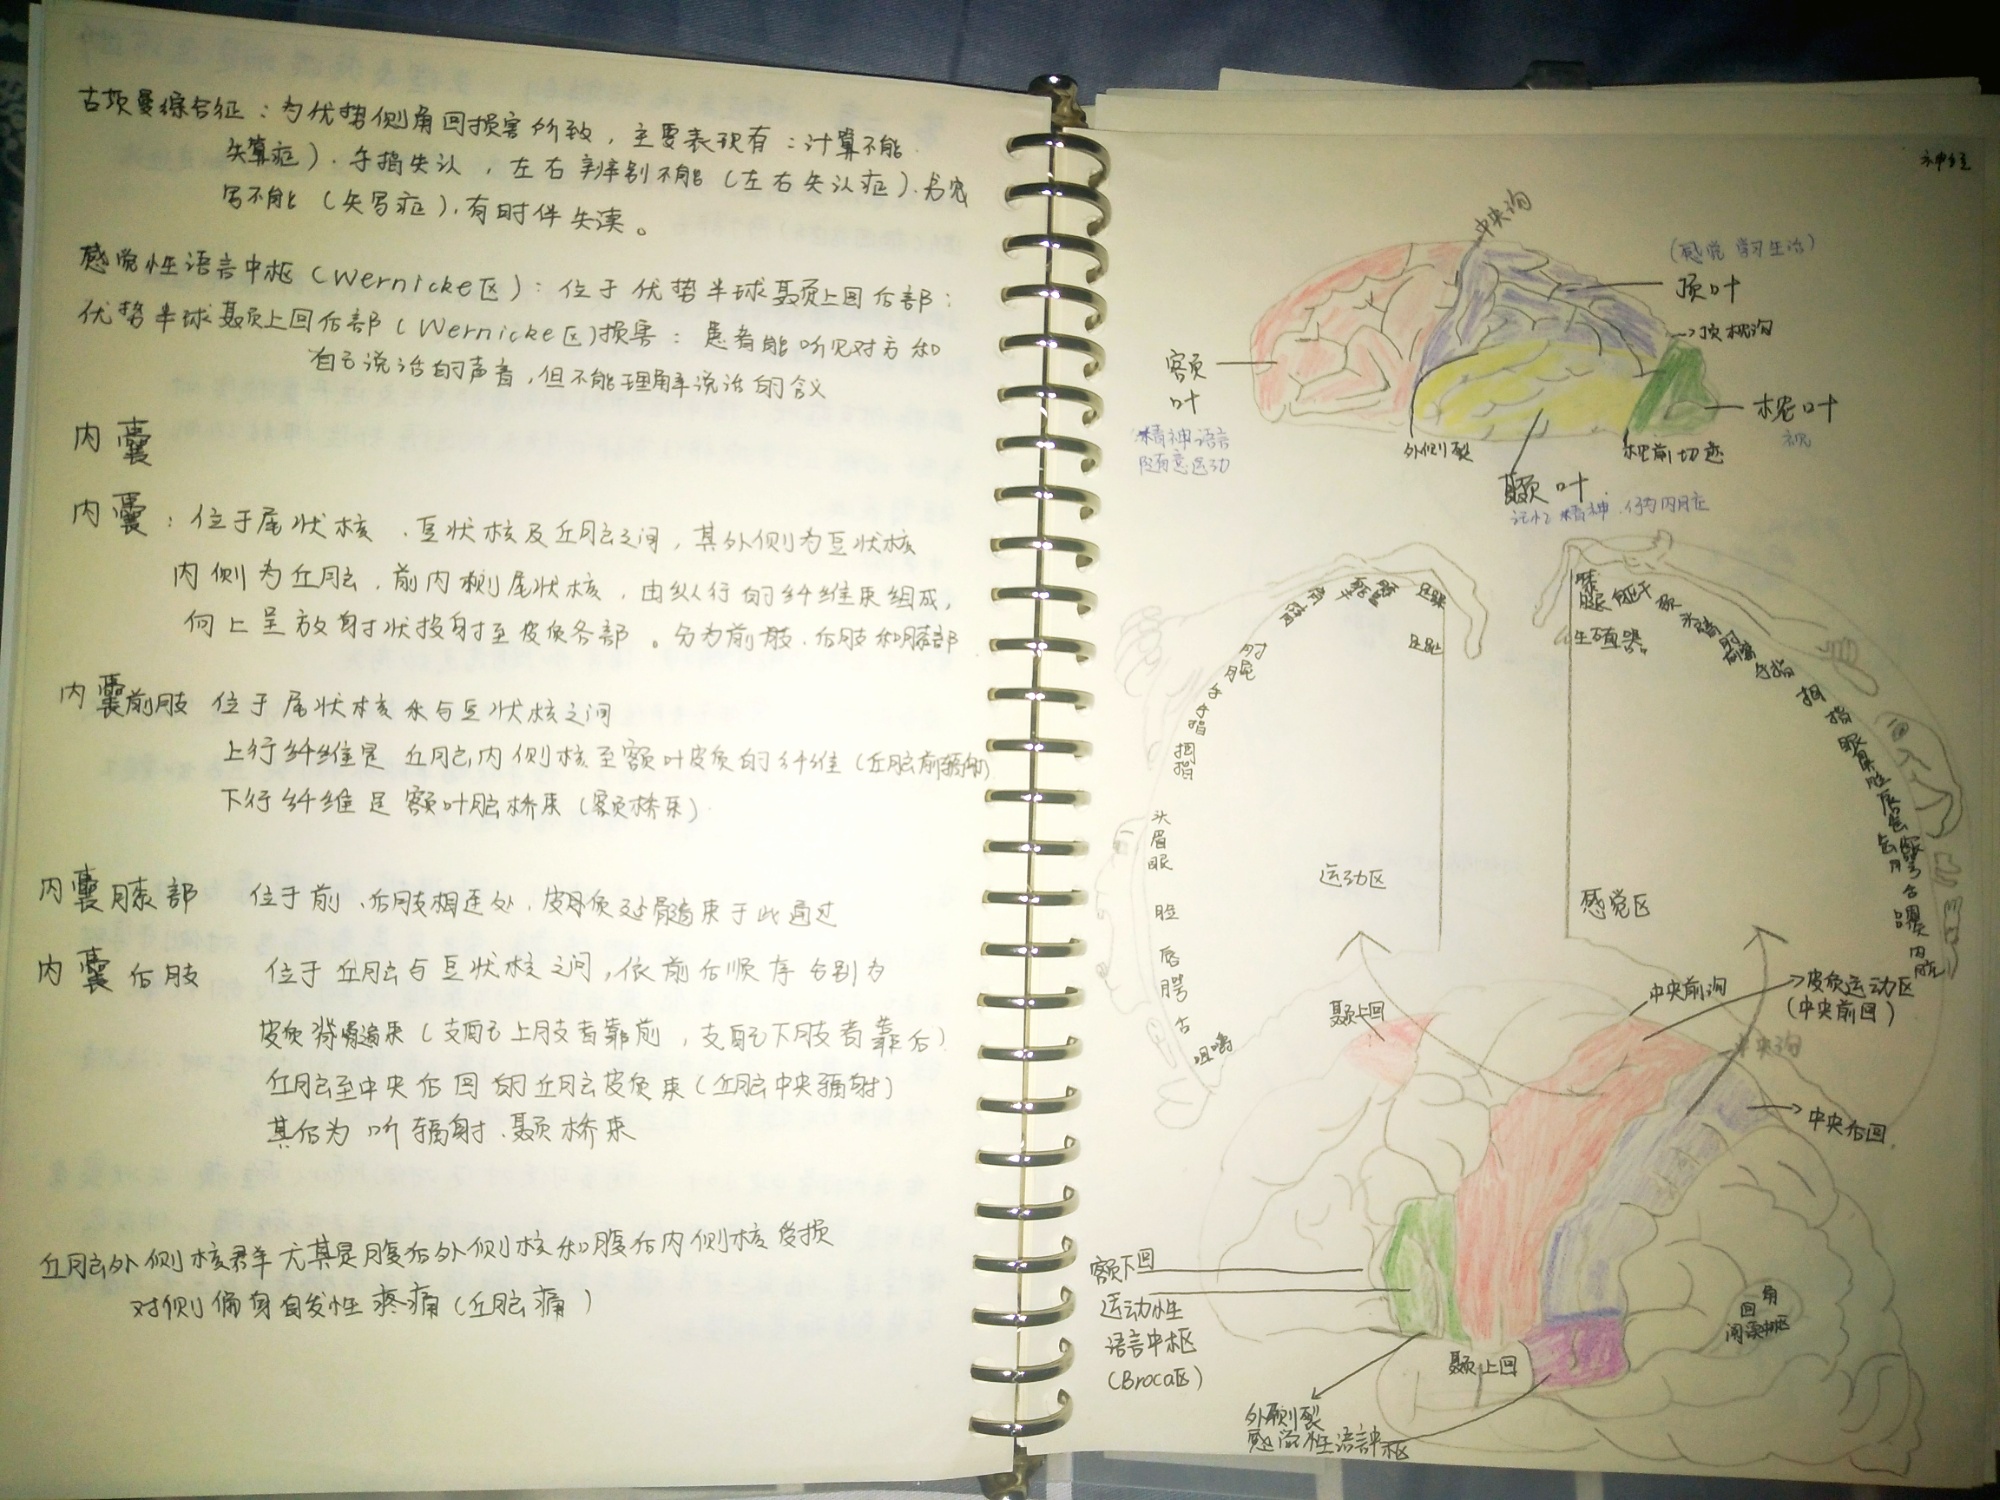 古茨曼综合征：为优势侧角回损害所致，主要表现有：计算不能
失算症）．手指失认，左右辨别不能（左右失认症）．书
写不能（失写症）．有时伴失读。
感觉性语言中枢（Wernicke区）：位于优势半球颞上回后部：
优势半球颞上回后部（Wernicke区）损害：患者能听见对方和
自己说话的声音，但不能理解说话的含义
内囊
内囊：位于尾状核．豆状核及丘脑之间，其外侧为豆状核
内侧为丘脑．前内侧尾状核．由纵行的纤维束组成，
向上呈放射状投射至皮质各部。分为前肢．后肢和膝部
内囊前肢 位于尾状核 与豆状核之间
上行纤维是 丘脑内侧核至额叶皮质的纤维（丘脑前辐射）
下行纤维是额叶脑桥束（额桥束）
内囊膝部 位于前．后肢相连处．皮质延髓束于此通过
内囊后肢 位于丘脑与豆状核之间，依前后顺序分别为
皮质脊髓束（支配上肢者靠前，支配下肢者靠后）
丘脑至中央后回的丘脑皮质束（丘脑中央辐射）
其后为 听辐射．颞桥束
丘脑外侧核群尤其是腹后外侧核和腹后内侧核受损
对侧偏身自发性疼痛（丘脑痛）
神经
中央沟
（感觉 学习生活）
顶叶
→顶枕沟
额
叶
精神语言
随意运动
枕叶
视
外侧裂
枕前切迹
颞叶
记忆 精神．行为内脏
足趾
肘
腕
手
手指
拇指
头
眉
眼
脸
唇
腭
舌
咀嚼
运动区
生殖器
头
手指
拇指
眼
鼻
脸
唇
内脏
感觉区
颞上回
中央前沟
皮质运动区
（中央前回）
中央沟
中央后回
额下回
运动性
语言中枢
（Broca区）
颞上回
角
回
阅读中枢
外侧裂
感觉性语言中枢